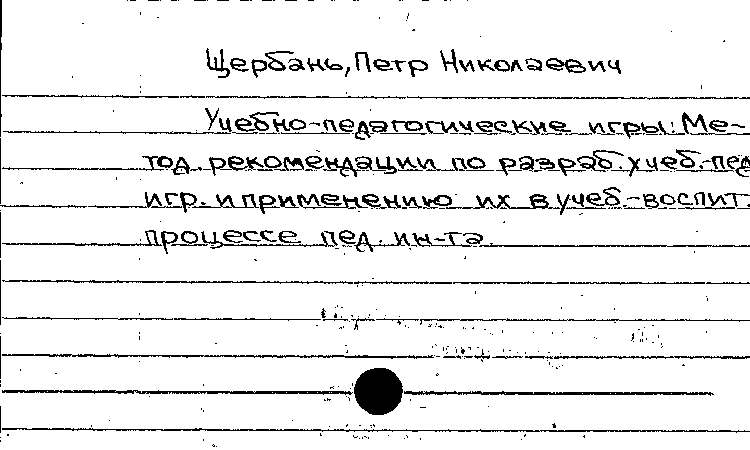 Щербань, Петр Николаевич
Учебно-педагогические игры: Ме-
тод. рекомендации по разраб. учеб.-пед
игр. и применению их в учеб.-воспит.
процессе пед. ин-та.